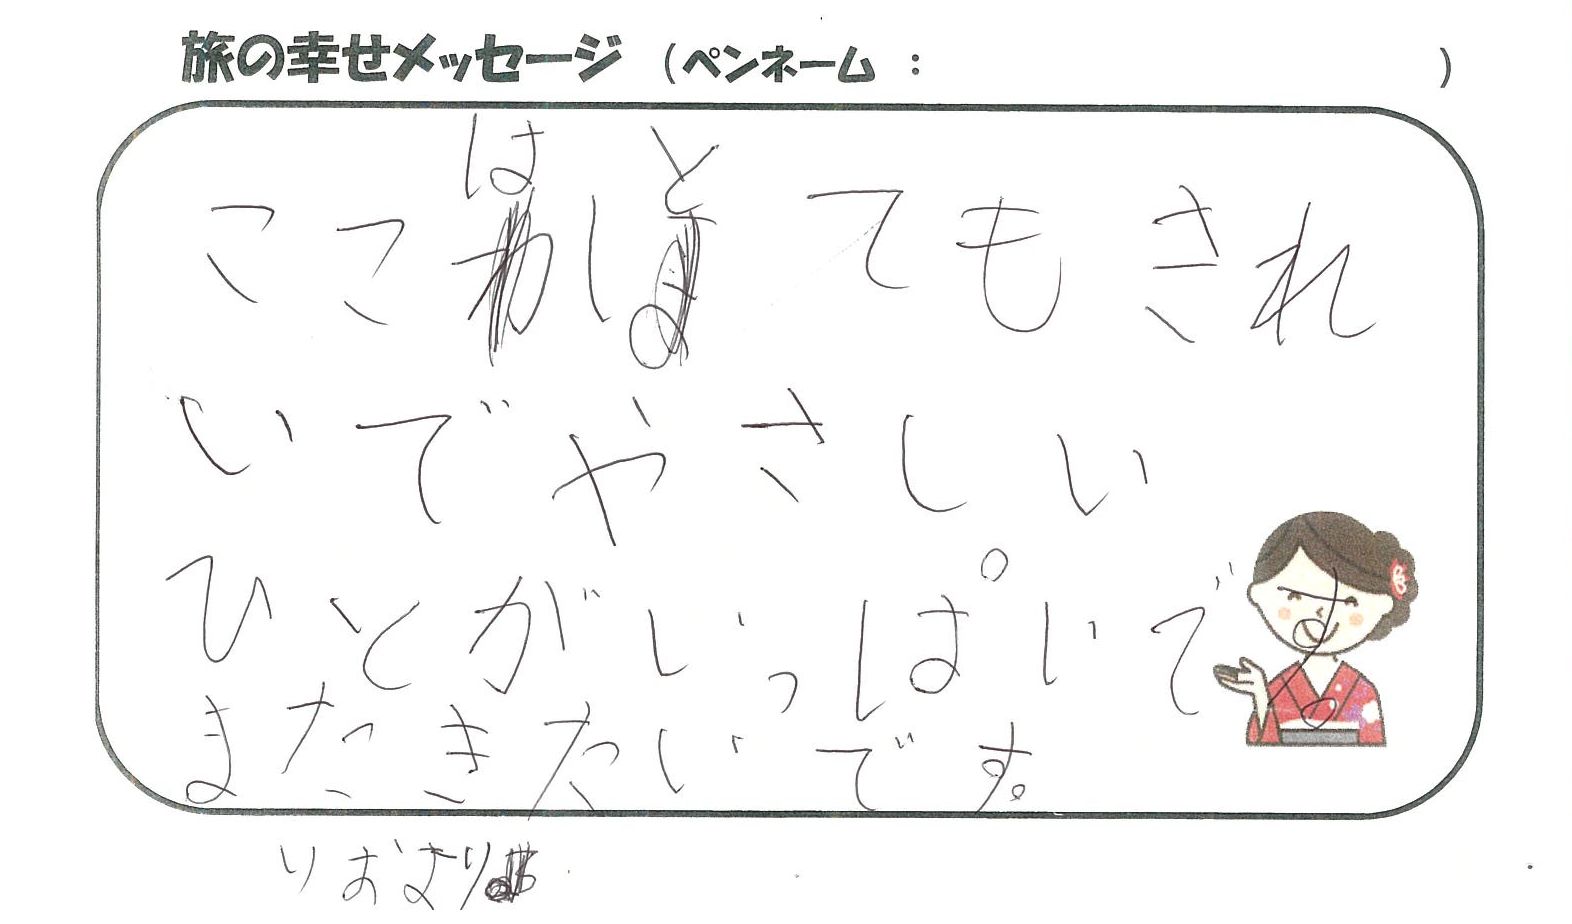 旅の幸せメッセージ (ペンネーム : )
ここはとてもきれ
いでやさしい
ひとがいっぱいです。
またきたいです。
りおより